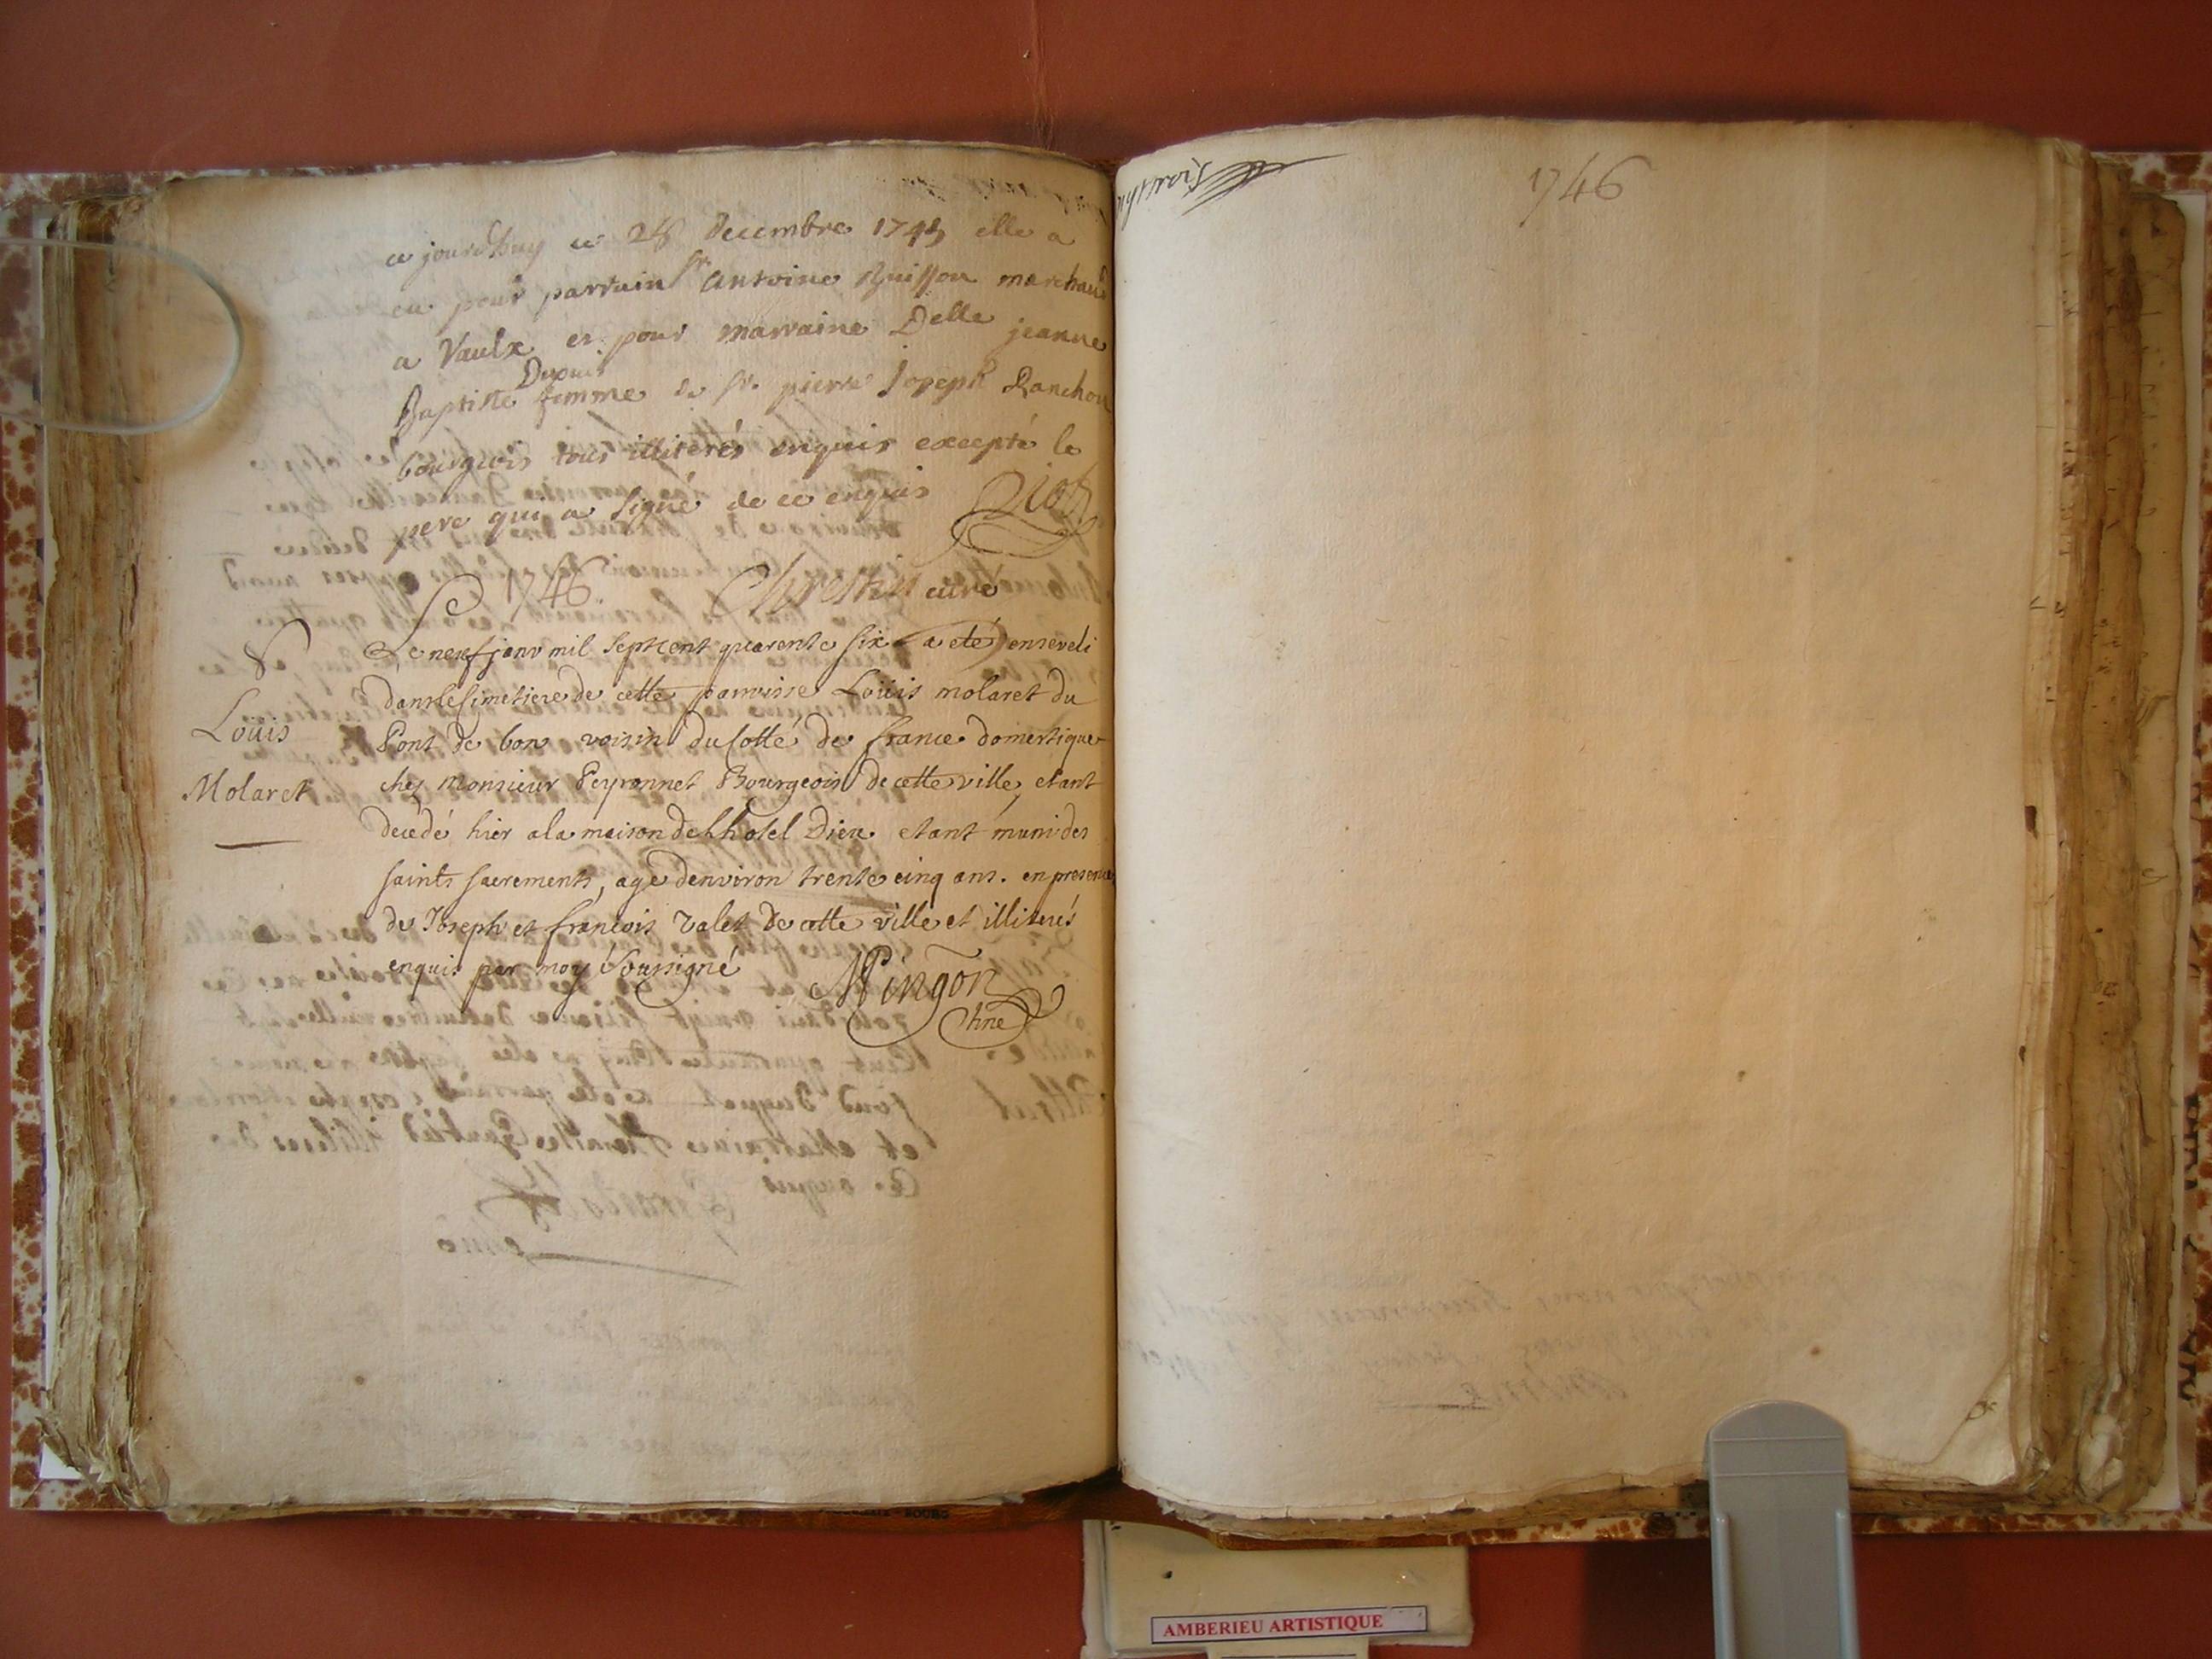 ce jourdhuy ce 28 decembre 1745 elle a
eu pour parrain Sr Antoine Buisson marchand
a Vaulx et pour marraine Delle jeanne
Baptiste Dupuis femme de Sr. pierre Joseph Ranchon
bourgeois tous illiterés enquis excepté le
pere qui a signé de ce enquis
Chrestin curé
1746
Le neuf janv mil sept cent quarente six a eté enseveli
dans le simetiere de cette parroisse Loüis molaret du
Pont de bon voisin du cotté de france domestique
chez Monsieur Peyronnet Bourgeois de cette ville, etant
decédé hier a la maison de Lhotel Dieu etant muni des
saints sacrements, age denviron trente cinq ans. en presence
de Joseph et francois Valet de cette ville et illiterés
enquis par moy soussigné
Mingon
Loüis
Molaret
1746
AMBERIEU ARTISTIQUE